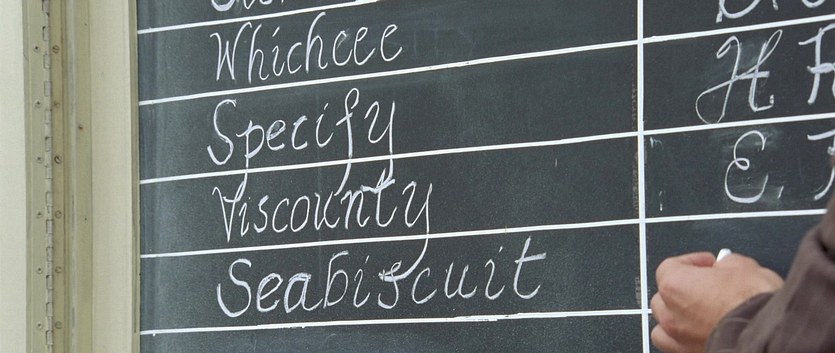 Whichcee H
Specify E
Viscounty
Seabiscuit